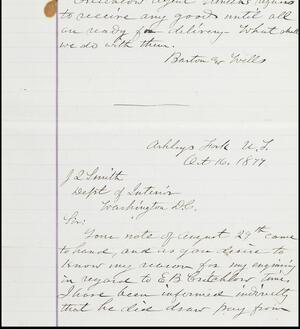 to receive any goods until all
are ready for delivery - What shall
we do with them.
Barton & Wells
Ashleys Fork U.T.
Oct 16, 1877
J Q Smith
Dept of Interior
Washington D.C.
Sir:
Your note of August 29th came
to hand, and as you desire to
know my reason for my enquiring
in regard to E B Critchlow time
I have been informed indirectly
that he did draw pay from